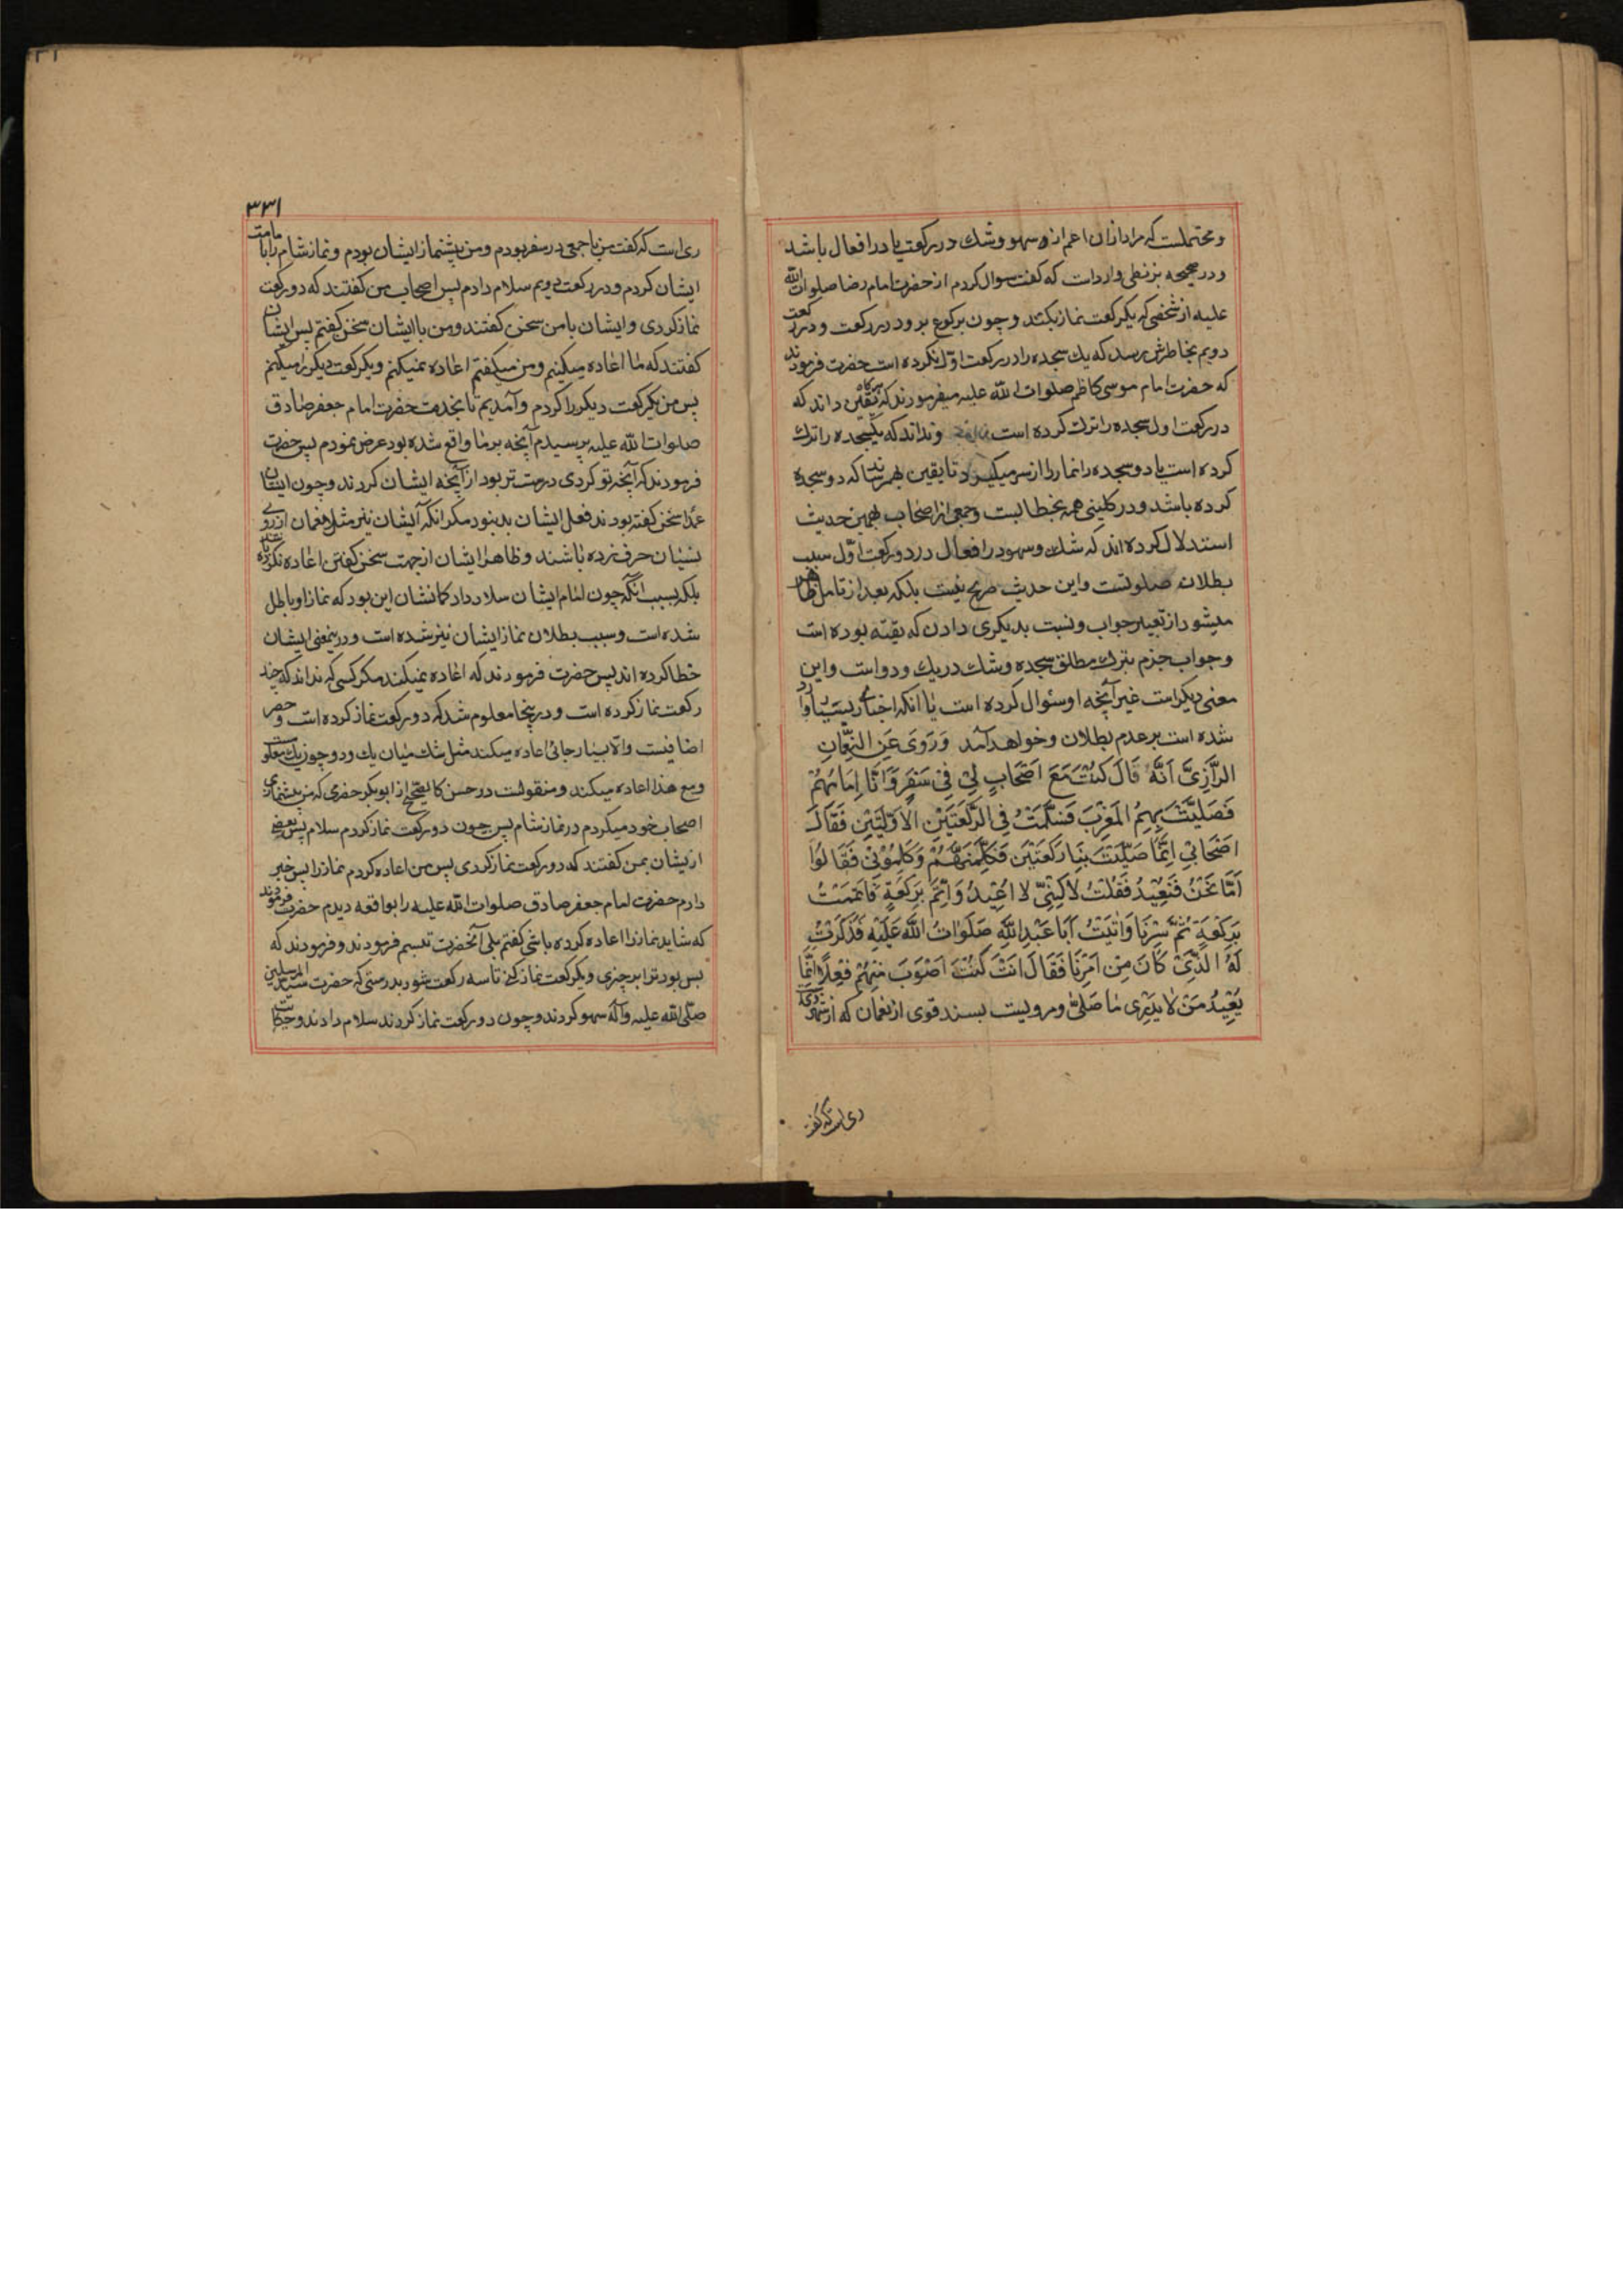 و محتملست که مراد ازان اعم از سهو و شك در رکعت یا در افعال باشد
و در صحیحه بزنطی وارداست که گفت سوال کردم از حضرت امام رضا صلوات الله
علیه از شخصی که یکرکعت نماز بکند و چون برکوع برود در رکعت و در رکعت
دویم بخاطرش برسد که یك سجده را در رکعت اول نکرده است حضرت فرمودند
که حضرت امام موسی کاظم صلوات الله علیه میفرمودند که هرگاه یقین داند که
در رکعت اول سجده را ترك کرده است و نداند که یکسجده را ترك
کرده است یا دو سجده را نماز را از سر میگیرد تا یقین بهم رساند که دو سجده
کرده باشد و در کلینی همه بخطابست و جمعی از اصحاب بهمین حدیث
استدلال کرده اند که شك و سهو در افعال در دو رکعت اول سبب
بطلانه صلوتست و این حدیث صریح نیست بلکه بعد از تامل ظاهر
میشود از تغییر جواب و نسبت بدیگری دادن که تقیه بوده است
و جواب جزم بترك مطلق سجده و شك در یك و دو است و این
معنی دیگر است غیر آنچه او سئوال کرده است یا آنکه اخبار بسیار وارد
شده است بر عدم بطلان و خواهد آمد وَ رَوَی عَنِ النُّعْمَانِ
الرَّازِیَّ اَنَّهُ قَالَ کُنْتُ مَعَ اَصْحَابٍ لِیْ فِیْ سَفَرٍ وَ اَنَا اِمَامُهُمْ
فَصَلَّیْتُ بِهِمُ المَغْرِبَ فَسَلَّمْتُ فِی الرَّکْعَتَیْنِ الْاَوَّلَتَیْنِ فَقَالَ
اَصْحَابِیْ اِنَّمَا صَلَّیْتَ بِنَا رَکْعَتَیْنِ فَکَلَّمْتُهُمْ وَ کَلَّمُوْنِیْ فَقَالُوْا
اَمَّا نَحْنُ فَنُعِیْدُ فَقُلْتُ لَاکِنِّیْ لَا اُعِیْدُ وَ اُتِمُّ بِرَکْعَةٍ فَاَتْمَمْتُ
بِرَکْعَةٍ ثُمَّ سِرْنَا وَ اَتَیْتُ اَبَا عَبْدِاللّهِ صَلَوَاتُ اللّهِ عَلَیْهِ فَذَکَرْتُ
لَهُ الَّذِیْ کَانَ مِنْ اَمْرِنَا فَقَالَ اَنْتَ کُنْتَ اَصْوَبَ مِنْهُمْ فِعْلًا اِنَّمَا
یُعِیْدُ مَنْ لَا یَدْرِی مَا صَلَّی و مرویست بسند قوی از نعمان که از شهر
ری است که گفت
۳۳۱
ری است که گفت من با جمعی در سفر بودم و من پیشنماز ایشان بودم و نماز شام را با مامت
ایشان کردم و در رکعت دویم سلام دادم پس اصحاب من گفتند که دو رکعت
نماز کردی و ایشان با من سخن گفتند و من با ایشان سخن گفتم پس ایشان
گفتند که ما اعاده میکنیم و من میگفتم اعاده نمیکنم و یکرکعت دیگر را میکنم
پس من یکرکعت دیگر را کردم و آمدیم تا بخدمت حضرت امام جعفر صادق
صلوات الله علیه پرسیدم آنچه بر ما واقع شده بود عرض نمودم پس حضرت
فرمودند که آنچه تو کردی درست تر بود از آنچه ایشان کردند و چون ایشان
عمدا سخن گفته بودند فعل ایشان بد بنود مگر آنکه ایشان نیز مثل نعمان از روی
نسیان حرف زده باشند و ظاهرا ایشان از جهت سخن گفتن اعاده نکرده
بلکه بسبب آنکه چون امام ایشان سلام داد کمانشان این بود که نماز او باطل
شده است و سبب بطلان نماز ایشان نیز شده است و در ینمعنی ایشان
خطا کرده اند پس حضرت فرمودند که اعاده نمیکند مگر کسی که نداند که چند
رکعت نماز کرده است و در ینجا معلوم شد که دو رکعت نماز کرده است و حصر
اضافیست و الا بسیار جائی اعاده میکند مثل شك میان یك و دو چون یك
و مع هذا اعاده میکند و منقولست در حسن کالصحیح از ابوبکر حضرمی که من پیشنمازی
اصحاب خود میکردم در نماز شام پس چون دو رکعت نماز کردم سلام پس بعضی
از یشان بمن گفتند که دو رکعت نماز کردی پس من اعاده کردم نماز را پس خبر
دادم حضرت امام جعفر صادق صلوات الله علیه را بواقعه دیدم حضرت فرمودند
که شاید نماز را اعاده کرده باشی گفتم بلی آنحضرت تبسم فرمودند و فرمودند که
بس بود ترا برخیزی و یکرکعت نماز کنی تا سه رکعت شود بدرستی که حضرت سید المرسلین
صلی الله علیه و آله سهو کردند و چون دو رکعت نماز کردند سلام دادند و حکایت